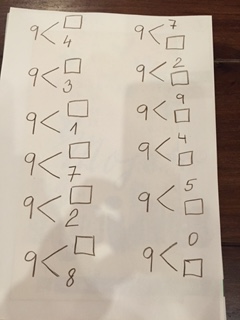 9 < □ 4
9 < □ 3
9 < □ 1
9 < □ 7
9 < □ 2
9 < □ 8
9 < 7 □
9 < 2 □
9 < 9 □
9 < 4 □
9 < 5 □
9 < 0 □